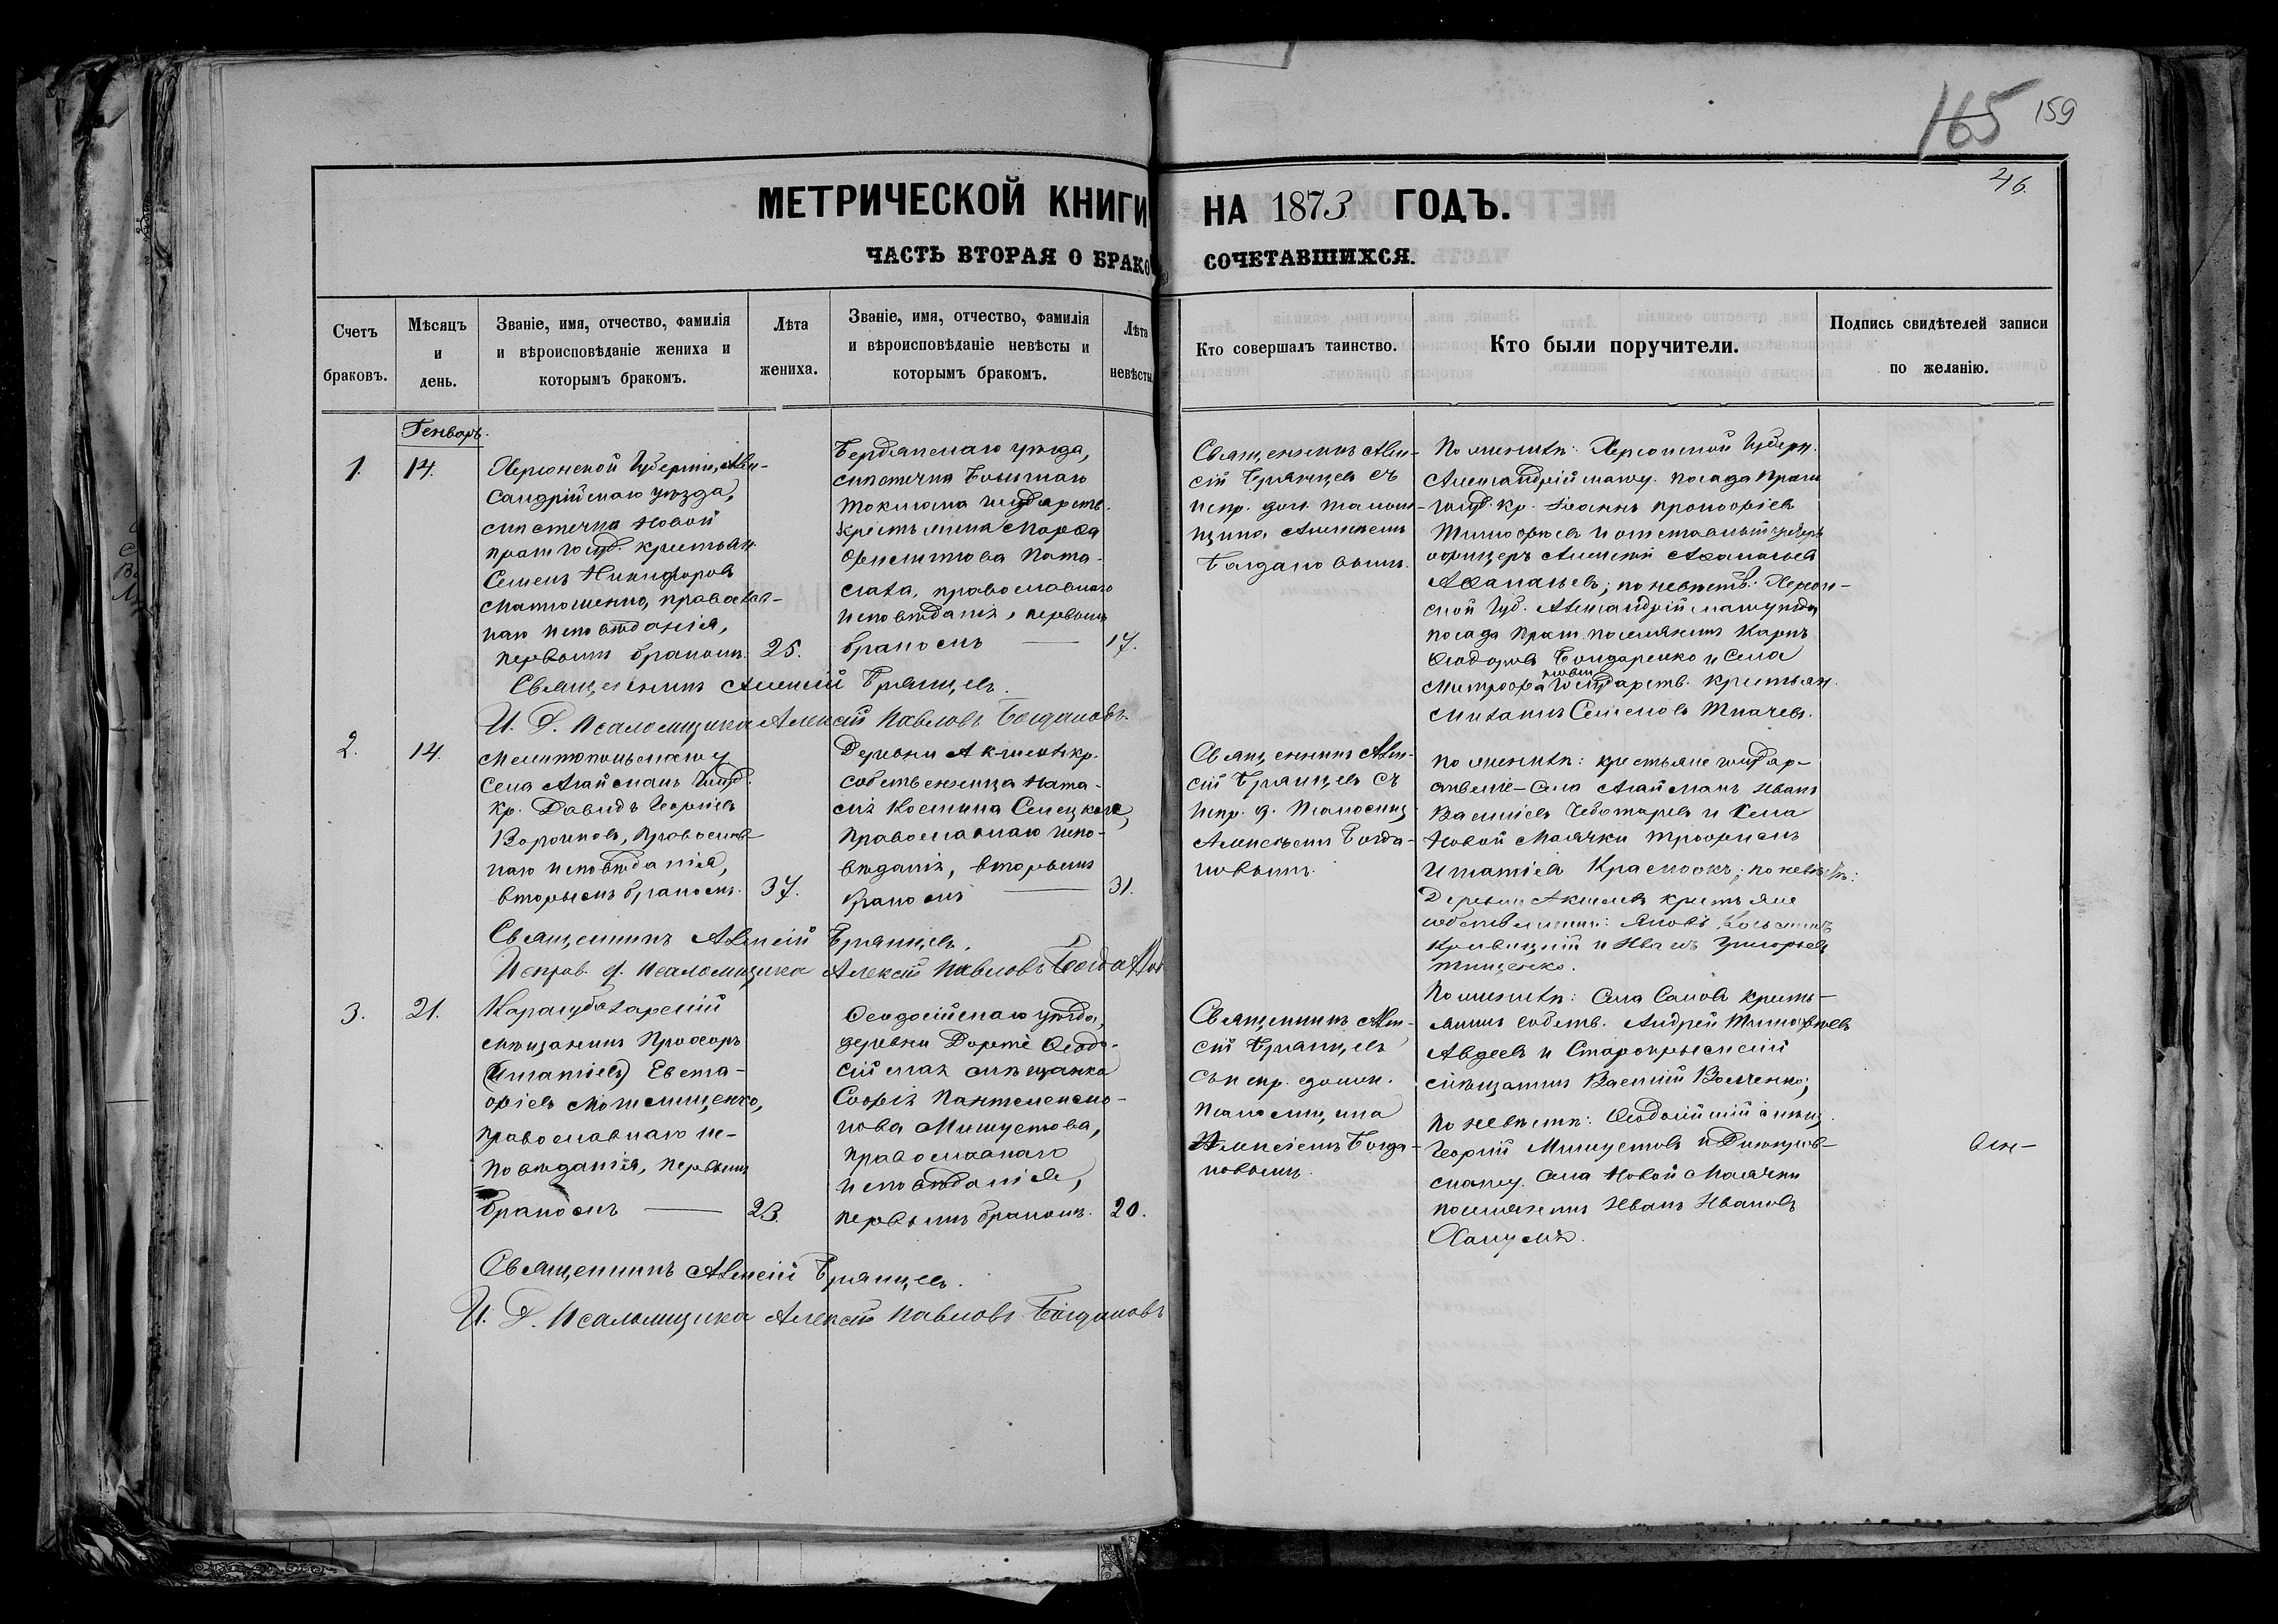 165 159
46.
МЕТРИЧЕСКОЙ КНИГИ НА 1873 ГОДЪ.
ЧАСТЬ ВТОРАЯ О БРАКО СОЧЕТАВШИХСЯ.
Счетъ браковъ.
Мѣсяцъ и день.
Званіе, имя, отчество, фамилія
и вѣроисповѣданіе жениха и
которымъ бракомъ.
Лѣта
жениха.
Званіе, имя, отчество, фамилія
и вѣроисповѣданіе невѣсты и
которымъ бракомъ.
Лѣта
невѣсты
Кто совершалъ таинство.
Кто были поручители.
Подпись свидѣтелей записи
по желанію.
Генварь.
1.
14.
Херсонской Губерніи, Алек-
сандрійскаго уѣзда,
мѣстечка Новой
Праги госуд. крестьян.
Семенъ Никифоровъ
Матюшенко, православ-
наго исповѣданія,
первымъ бракомъ.
25.
Бердянскаго уѣзда,
мѣстечка Большаго
Токмака государств.
крестьянина Марѳа
Филиппова
православнаго
исповѣданія, первымъ
бракомъ
17.
Священникъ Алек-
сій Брянцевъ съ
испр. дол. псалом-
щика Алексѣемъ
Богдановымъ.
По женихѣ: Херсонской Губерн.
Александрійскаго у. посада Праги
госуд. кр. Іоаннъ Прокофіев
Тимофѣевъ и отставный унтеръ
офицеръ Алексѣй Аѳанасьев
Аѳанасьевъ; по невѣстѣ: Херсон-
ской Губ. Александрійскаго уѣзда
посада Праги поселянинъ Карпъ
Ѳеодоровъ Бондаренко и села
Митрофановки Государств. крестьян.
Михаилъ Семеновъ Ткачевъ.
Священникъ Алексій Брянцевъ.
И. Д. Псаломщика Алексій Павловъ Богдановъ.
2.
14.
Мелитопольскаго у.
Села Агайманъ Госуд.
кр. Давидъ Георгіев
православ-
наго исповѣданія,
вторымъ бракомъ.
37.
Деревни Акимовк кр.
собственница Ната-
лія Косьмина
православнаго испо-
вѣданія, вторымъ
бракомъ
31.
Священникъ Алек-
сій Брянцевъ съ
испр. д. Псаломщ.
Алексѣемъ Богда-
новымъ.
По женихѣ: крестьяне государ-
ственные – Села Агайманъ Иванъ
Василіевъ Чеботаревъ и Села
Новой Маячки Трофимъ
Игнатіевъ; по невѣстѣ:
Деревни крестьяне
собственники: Яковъ
и Иванъ Григорьевъ
Тищенко.
Священникъ Алексій Брянцевъ.
Исправ. д. Псаломщика Алексій Павловъ Богданов
3.
21.
Карасубазарскій
мѣщанинъ Прохоръ
(Игнатіевъ) Евста-
фіевъ
православнаго ис-
повѣданія, первымъ
бракомъ
23.
Ѳеодосійскаго уѣзда,
деревни Ѳеодо-
сійская мѣщанка
Софія Пантелеимо-
нова Мишустова,
православнаго
исповѣданія,
первымъ бракомъ.
20.
Священникъ Алек-
сій Брянцевъ
съ испр. должн.
Псаломщика
Алексіемъ Богда-
новымъ.
По женихѣ: Села кресть-
янинъ собств. Андрей Тимофѣевъ
Авдеевъ и Старокрымскій
мѣщанинъ Василій Волченко;
По невѣстѣ: Ѳеодосійскій мѣщ.
Георгій Мишустовъ и Днѣпров-
скаго у. Села Новой Маячки
поселянинъ Иванъ Ивановъ
Священникъ Алексій Брянцевъ.
И. Д. Псаломщика Алексій Павловъ Богдановъ